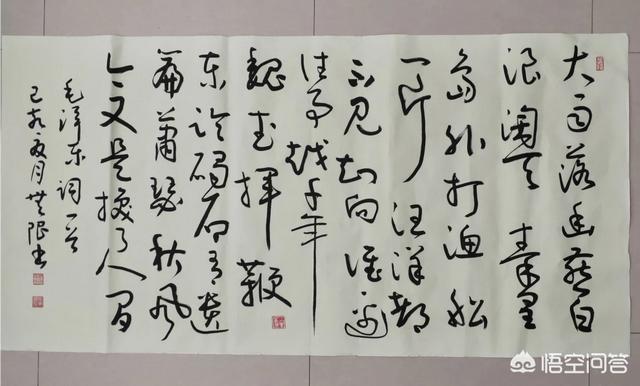 大雨落幽燕白
浪滔天秦皇
岛外打渔船
一片汪洋都
不见知向谁边
往事越千年
魏武挥鞭
东临碣石有遗
篇萧瑟秋风
今又是换了人间
毛泽东词一首
己亥夏月书
悟空问答